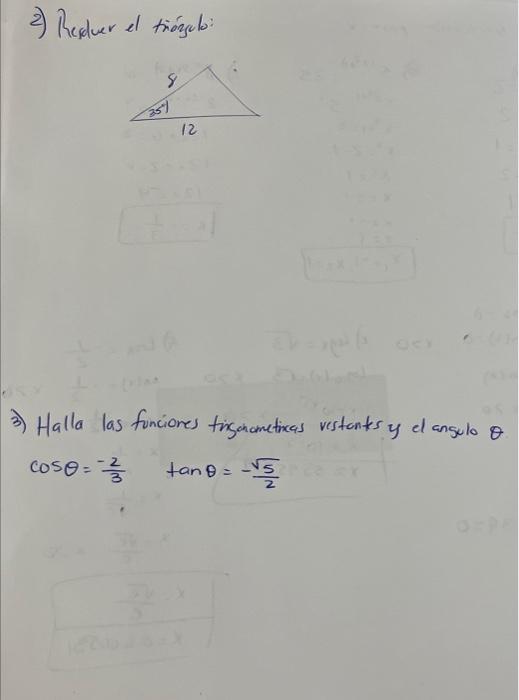 2) Resolver el triángulo:
8
35°
12
3) Halla las funciones trigonometricas restantes y el angulo θ
cosθ = -2/3 tanθ = -√5/2